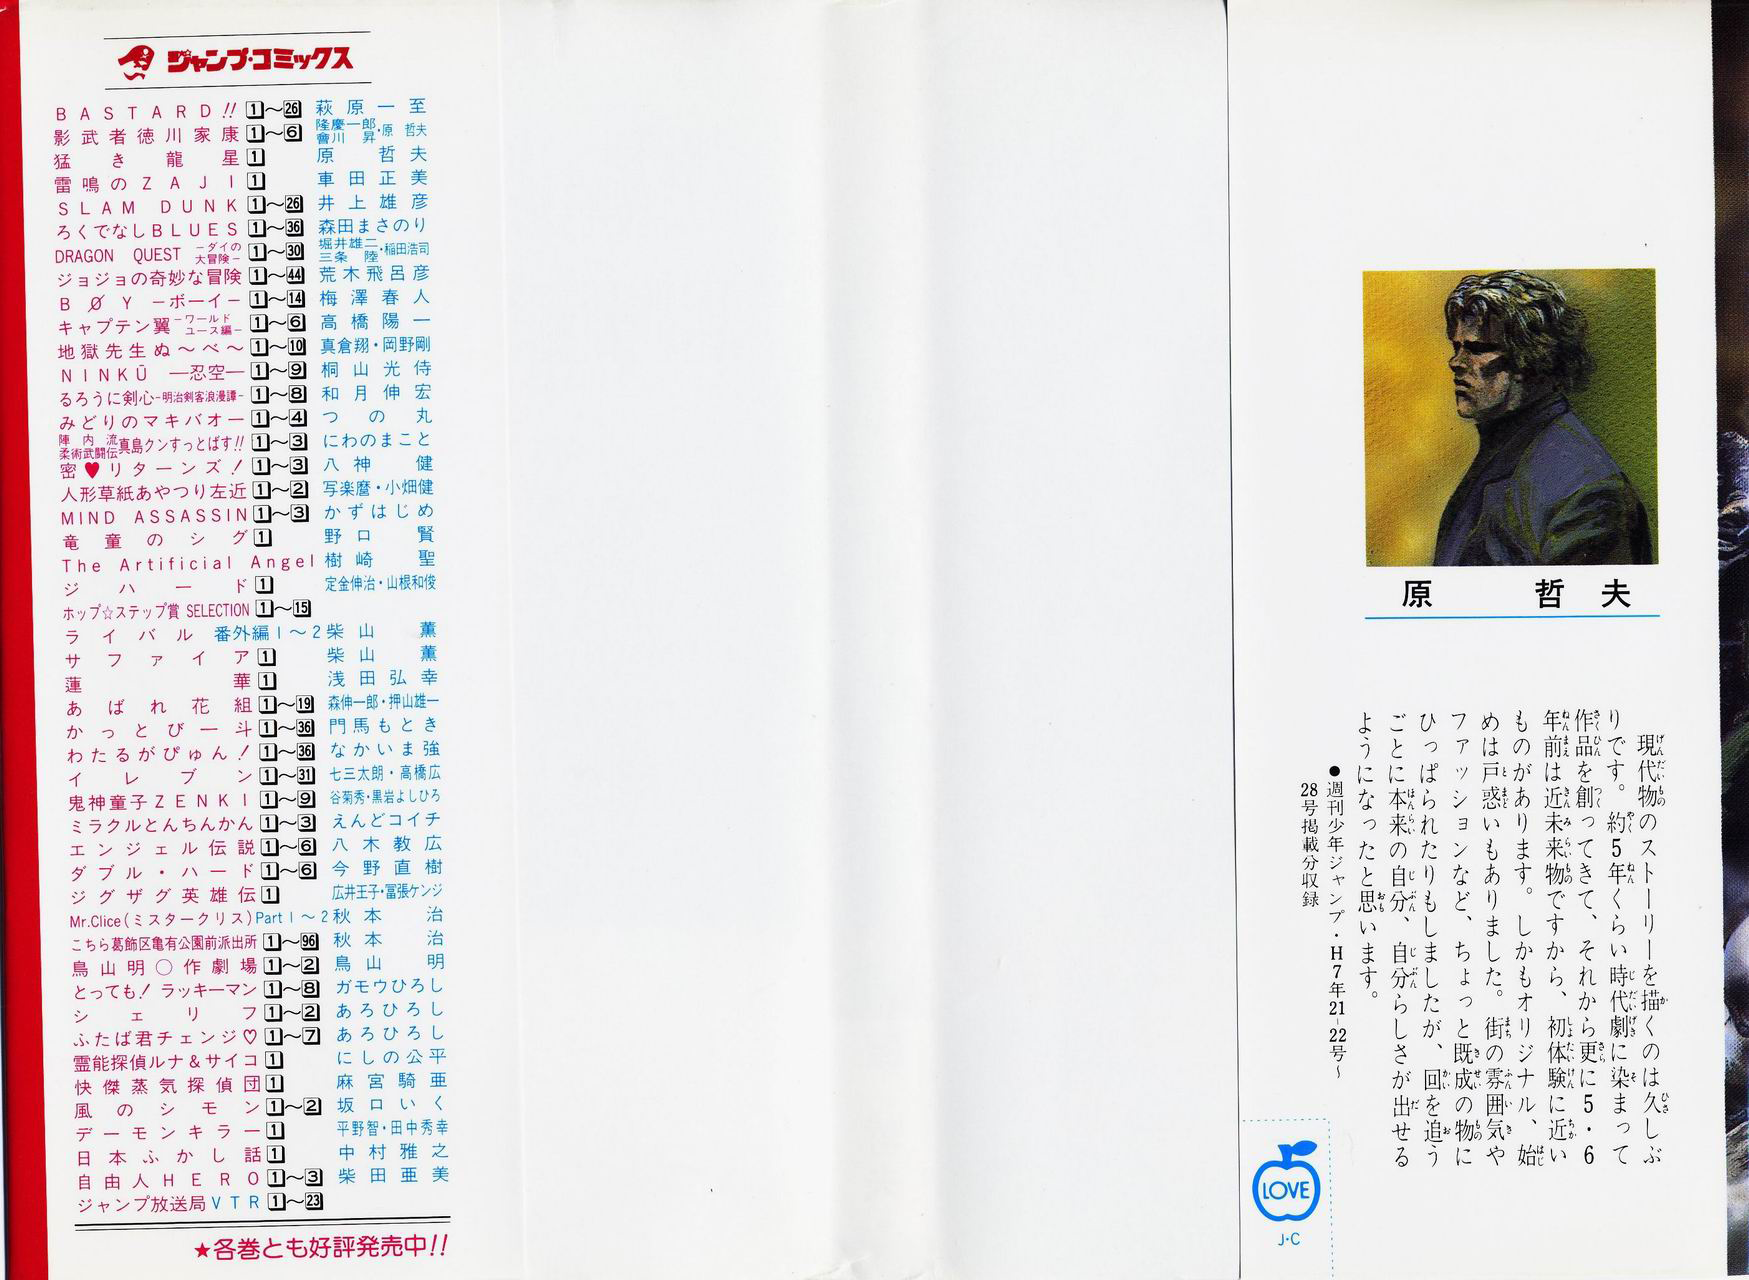 ジャンプ・コミックス
BASTARD!! 1〜26 萩原一至
影武者徳川家康 1〜6 隆慶一郎・會川昇・原哲夫
猛き龍星 1 原哲夫
雷鳴のZAJI 1 車田正美
SLAM DUNK 1〜26 井上雄彦
ろくでなしBLUES 1〜36 森田まさのり
DRAGON QUEST －ダイの大冒険－ 1〜30 堀井雄二 三条陸・稲田浩司
ジョジョの奇妙な冒険 1〜44 荒木飛呂彦
BØY －ボーイ－ 1〜14 梅澤春人
キャプテン翼 －ワールドユース編－ 1〜6 高橋陽一
地獄先生ぬ〜べ〜 1〜10 真倉翔・岡野剛
NINKŪ ―忍空― 1〜9 桐山光侍
るろうに剣心－明治剣客浪漫譚－ 1〜8 和月伸宏
みどりのマキバオー 1〜4 つの丸
陣内流柔術武闘伝真島クンすっとばす!! 1〜3 にわのまこと
密♥リターンズ! 1〜3 八神健
人形草紙あやつり左近 1〜2 写楽麿・小畑健
MIND ASSASSIN 1〜3 かずはじめ
竜童のシグ 1 野口賢
The Artificial Angel 樹崎聖
ジハード 1 定金伸治・山根和俊
ホップ☆ステップ賞 SELECTION 1〜15
ライバル 番外編1〜2 柴山薫
サファイア 1 柴山薫
蓮華 1 浅田弘幸
あばれ花組 1〜19 森伸一郎・押山雄一
かっとび一斗 1〜36 門馬もとき
わたるがぴゅん! 1〜36 なかいま強
イレブン 1〜31 七三太朗・高橋広
鬼神童子ZENKI 1〜9 谷菊秀・黒岩よしひろ
ミラクルとんちんかん 1〜3 えんどコイチ
エンジェル伝説 1〜6 八木教広
ダブル・ハード 1〜6 今野直樹
ジグザグ英雄伝 1 広井王子・冨張ケンジ
Mr.Clice(ミスタークリス) Part 1〜2 秋本治
こちら葛飾区亀有公園前派出所 1〜96 秋本治
鳥山明○作劇場 1〜2 鳥山明
とっても!ラッキーマン 1〜8 ガモウひろし
シェリフ 1〜2 あろひろし
ふたば君チェンジ♡ 1〜7 あろひろし
霊能探偵ルナ&サイコ 1 にしの公平
快傑蒸気探偵団 1 麻宮騎亜
風のシモン 1〜2 坂口いく
デーモンキラー 1 平野智・田中秀幸
日本ふかし話 1 中村雅之
自由人HERO 1〜3 柴田亜美
ジャンプ放送局VTR 1〜23
★各巻とも好評発売中!!
原哲夫
現代物のストーリーを描くのは久しぶ
りです。約5年くらい時代劇に染まって
作品を創ってきて、それから更に5・6
年前は近未来物ですから、初体験に近い
ものがあります。しかもオリジナル、始
めは戸惑いもありました。街の雰囲気や
ファッションなど、ちょっと既成の物に
ひっぱられたりもしましたが、回を追う
ごとに本来の自分、自分らしさが出せる
ようになったと思います。
●週刊少年ジャンプ・H7年21-22号〜
28号掲載分収録
LOVE
J・C